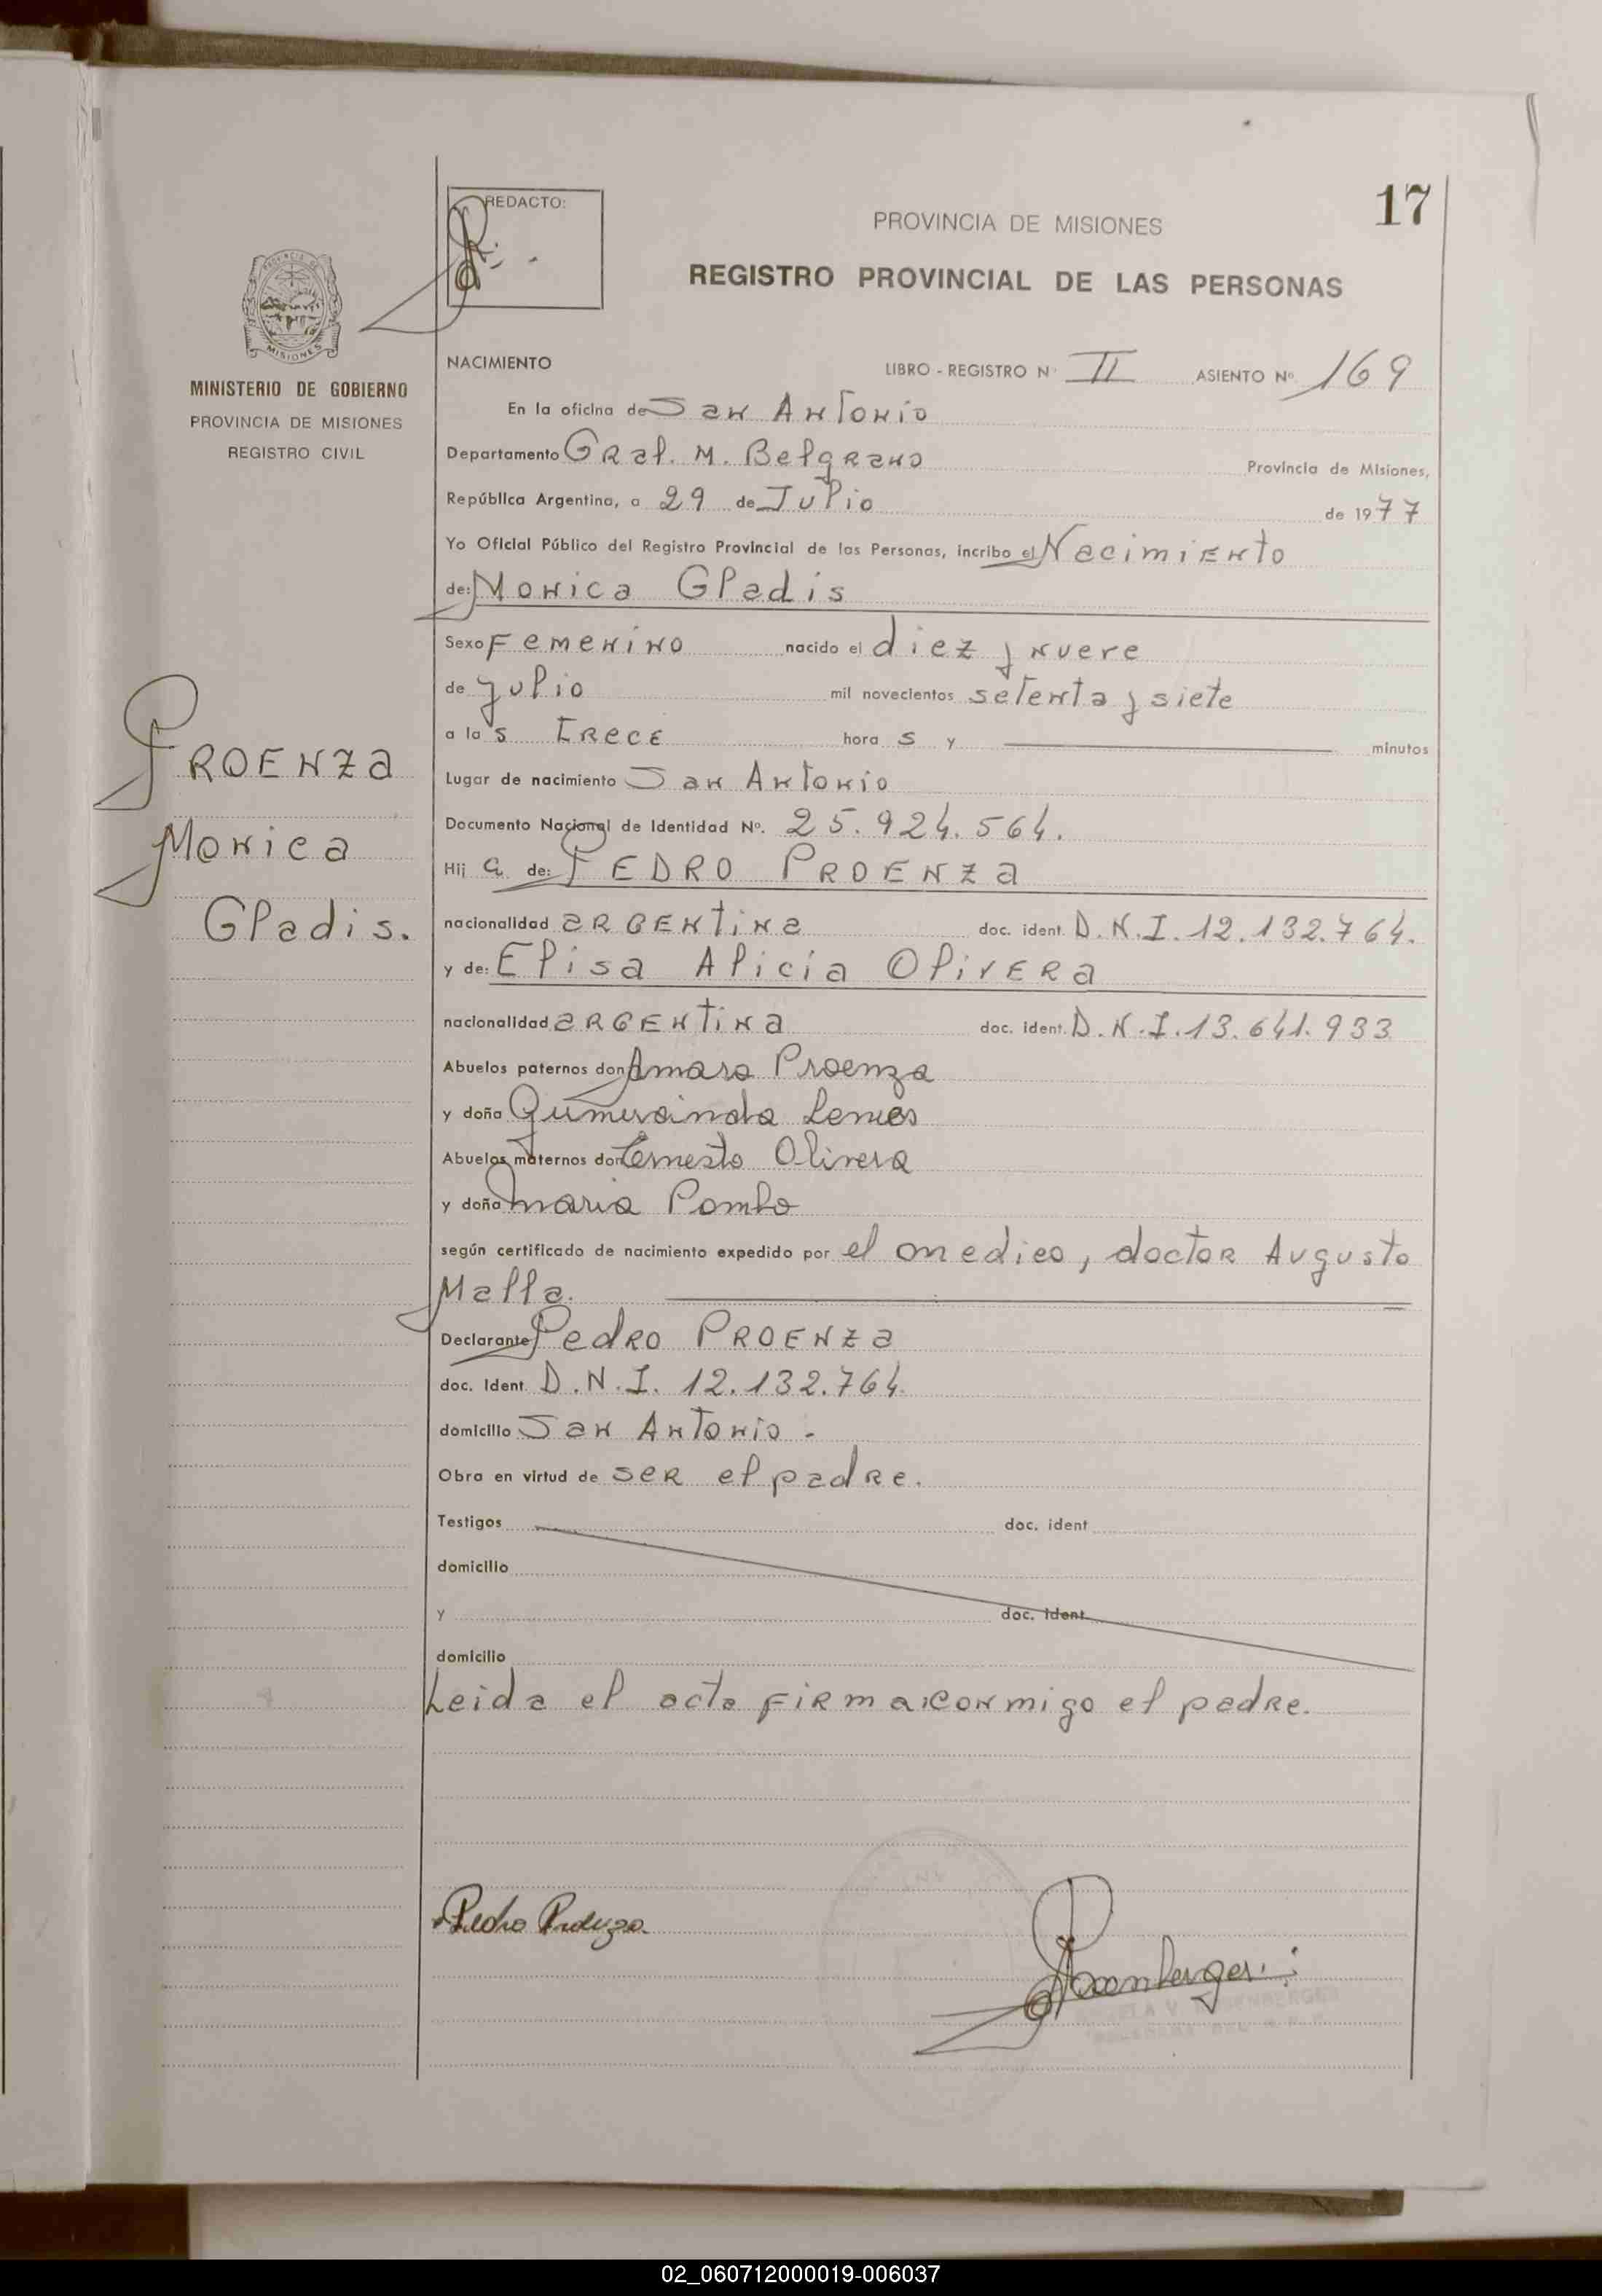 17
REDACTO:
PROVINCIA DE MISIONES
REGISTRO PROVINCIAL DE LAS PERSONAS
MISIONES
MINISTERIO DE GOBIERNO
PROVINCIA DE MISIONES
REGISTRO CIVIL
PROENZA
Monica
Gladis.
NACIMIENTO LIBRO - REGISTRO N° II ASIENTO Nº 169
En la oficina de San Antonio
Departamento Gral. M. Belgrano Provincia de Misiones,
República Argentina, a 29 de Julio de 1977
Yo Oficial Público del Registro Provincial de las Personas, incribo el Nacimiento
de: Monica Gladis
Sexo Femenino nacido el diez y nueve
de julio mil novecientos setenta y siete
a las trece horas y minutos
Lugar de nacimiento San Antonio
Documento Nacional de Identidad Nº. 25.924.564.
Hija de: PEDRO PROENZA
nacionalidad argentina doc. ident. D.N.I. 12.132.764.
y de: Elisa Alicia Olivera
nacionalidad argentina doc. ident. D.N.I. 13.641.933
Abuelos paternos don Amaro Proenza
y doña Gumersinda Lemes
Abuelos maternos don Ernesto Olivera
y doña Maria Pombo
según certificado de nacimiento expedido por el medico, doctor Augusto
Malla.
Declarante Pedro PROENZA
doc. Ident. D.N.I. 12.132.764
domicilio San Antonio.
Obra en virtud de ser el padre.
Testigos doc. ident
domicilio
y doc. ident
domicilio
Leida el acta firma conmigo el padre.
Pedro Proenza
02_060712000019-006037